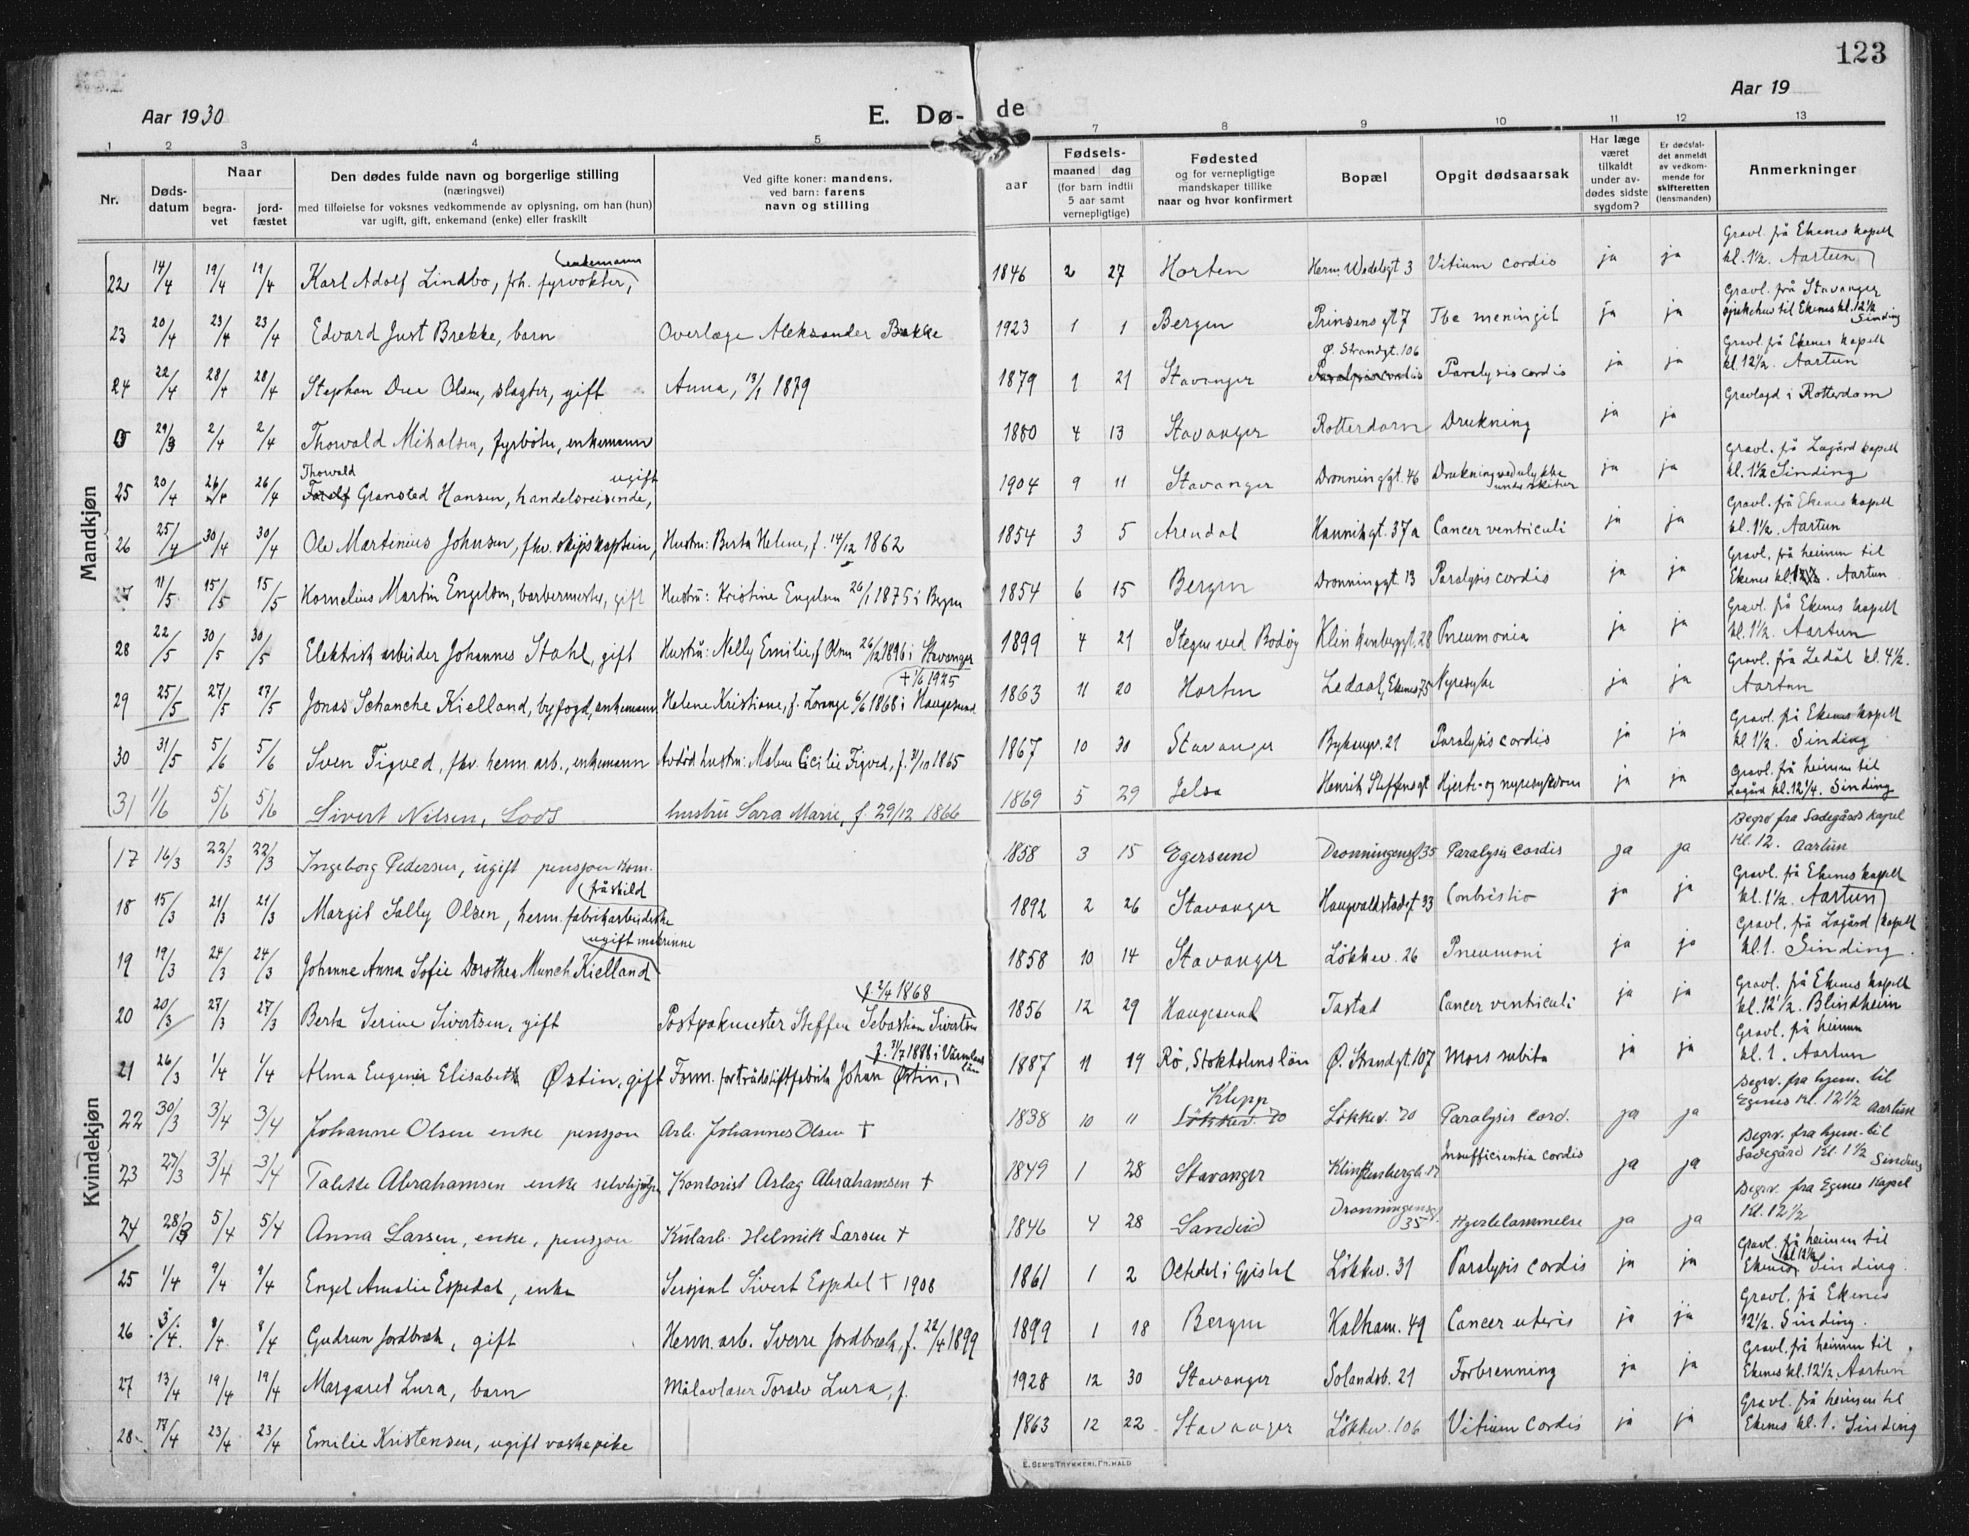 123
Aar 1930
E. Dø-
de
Aar 19
1 2 3 4 5 7 8 9 10 11 12 13
Nr.
Døds-
datum
Naar
begra-
vet
jord-
fæstet
Den dødes fulde navn og borgerlige stilling
(næringsvei)
med tilføielse for voksnes vedkommende av oplysning, om han (hun)
var ugift, gift, enkemand (enke) eller fraskilt
Ved gifte koner: mandens,
ved barn: farens
navn og stilling
aar
Fødsels-
maaned dag
(for barn indtil
5 aar samt
vernepligtige)
Fødested
og for vernepligtige
mandskaper tillike
naar og hvor konfirmert
Bopæl
Opgit dødsaarsak
Har læge
været
tilkaldt
under av-
dødes sidste
sygdom?
Er dødsfal-
det anmeldt
av vedkom-
mende for
skifteretten
(lensmanden)
Anmerkninger
Mandkjøn
22 14/4 19/4 19/4 Karl Adolf Lindbo, frh. fyrvokter, enkemann 1846 2 27 Horten Herm. Wedelsgt 3 Vitium cordis ja ja Gravl. frå Ekenes kapell
kl. 1½. Aartun
23 20/4 23/4 23/4 Edvard Just Brekke, barn Overlæge Aleksander Brekke 1923 1 1 Bergen Prinsens gt 7 Tbc meningit ja ja Gravl. frå Stavanger
sjukehus til Ekenes kl. 12½
Sinding
24 22/4 28/4 28/4 Stephan Due Olsen, slagter, gift Anna, 13/1 1879 1879 9 21 Stavanger Ø. Strandgt. 106 Paralysis cordis ja ja Gravl. frå Ekenes kapell
kl. 12½. Aartun
0 29/3 2/4 2/4 Thorvald Mikalsen, fyrbøter, enkemann 1880 4 13 Stavanger Rotterdam Drukning ja ja Gravlagd i Rotterdam
25 20/4 26/4 26/4 Thorvald Gransted Hansen, handelsreisende, ugift 1904 9 11 Stavanger Dronningsgt. 46 Drukning ved ulykke
under skitur ja ja Gravl. frå Lagård kapell
kl. 1½ Sinding
26 25/4 30/4 30/4 Ole Martinius Johnsen, fhv. skipskaptein, Hustru: Berta Helene, f. 14/12 1862 1854 3 5 Arendal Hannikgt. 37a Cancer ventriculi ja ja Gravl. frå Ekenes kapell
kl. 1½. Aartun
27 11/5 15/5 15/5 Kornelius Martin Engelsen, barbermester, gift Hustru: Kristine Engelsen 26/1 1875 i Bergen 1854 6 15 Bergen Dronninggt. 13 Paralysis cordis ja ja Gravl. frå heimen til
Ekenes kl. 1½. Aartun
28 22/5 30/5 30/5 Elektrisk arbeider Johannes Stahl, gift Hustru: Nelly Emilie, f. Olsen 26/12 1896 i Stavanger 1899 4 21 Stegen ved Bodø Klinkenberggt. 28 Pneumonia ja ja Gravl. frå Ekenes kapell
kl. 1½. Aartun
29 25/5 27/5 27/5 Jonas Schanche Kielland, byfogd, enkemann Helene Kristiane, f. Lorange 6/6 1868 i Haugesund † 1/6 1925 1863 11 20 Horten Ledaal, Ekenes 75 Nyresyke ja ja Gravl. frå Ledål kl. 4½.
Aartun
30 31/5 5/6 5/6 Sven Tigved, fhv. herm. arb., enkemann Avdød hustru: Malene Cicilie Tigved, f. 31/10 1865 1867 10 30 Stavanger Byhaugv. 21 Paralysis cordis ja ja Gravl. frå Ekenes kapell
kl. 1½. Sinding
31 1/6 5/6 5/6 Sivert Nilsen, Lods hustru Sara Marie, f. 29/12 1866 1869 5 29 Jelsa Henrik Steffensgt Hjerte- og nyresykdom ja ja Gravl. frå heimen til
Lagård kl. 12¼. Sinding
Kvindekjøn
17 16/3 22/3 22/3 Ingeborg Pedersen, ugift pensjon kom. 1858 3 15 Egersund Dronningensgt 35 Paralysis cordis ja ja Begrv fra Ladegårds kapel
Kl. 12. Aartun
18 15/3 21/3 21/3 Margit Sally Olsen, herm. fabrikarbeiderske fråskild 1892 2 26 Stavanger Haugvaldstadgt 33 Conbustio ja ja Gravl. frå Ekenes kapell
kl. 1½. Aartun
19 19/3 24/3 24/3 Johanne Anna Sofie Dorothea Munch Kielland ugift malerinne 1858 10 14 Stavanger Løkkev. 26 Pneumoni ja ja Gravl. frå Lagård kapell
kl. 1. Sinding.
20 20/3 27/3 27/3 Berta Serine Sivertsen, gift Postpakmester Steffen Sebastian Sivertsen f. 2/4 1868 1856 12 29 Haugesund Tastad Cancer ventriculi ja ja Gravl. frå Ekenes kapell
kl. 12½. Blindheim
21 26/3 1/4 1/4 Alma Eugenia Elisabeth Østin, gift Form. for trådstiftfabrik Johan Østin, f. 31/7 1888 i Värmlands
län 1887 11 19 Rö, Stokholms län Ø. Strandgt. 107 Mors subita ja ja Gravl. frå heimen
kl. 1. Aartun
22 30/3 3/4 3/4 Johanne Olsen enke pensjon Arb. Johannes Olsen † 1838 10 11 Klepp Løkkev. 70 Løkkev. 70 Paralysis cord. ja ja Begrv. fra hjem. til
Egenes Kl. 12½ Aartun
23 27/3 3/4 3/4 Talette Abrahamsen enke Kontorist Aslag Abrahamsen † 1849 1 28 Stavanger Klinkenbergb. 17 Insufficientia cordis ja ja Begrv. fra hjem. til
Ladegård Kl. 1½ Sinding
24 28/3 5/4 5/4 Anna Larsen, enke, pensjon Kularb. Helmik Larsen † 1846 4 28 Sandeid Dronningensgt.
35 Hjertelammelse ja ja Begrv. fra Egenes Kapel
Kl. 12½
25 1/4 9/4 9/4 Engel Amalie Espedal, enke Sersjant Sivert Espedal † 1908 1861 1 2 Octedal i Gjestal Løkkev. 31 Paralysis cordis ja ja Gravl. frå heimen til
Ekenes kl 12½ Sinding.
26 3/4 8/4 8/4 Gudrun Jordbræk, gift Herm. arb. Sverre Jordbræk, f. 22/4 1899 1899 1 18 Bergen Kalham. 49 Cancer uteris ja ja Gravl. frå Ekenes
12½. Sinding.
27 13/4 19/4 19/4 Margaret Lura, barn Toralv Lura, f. 1928 12 30 Stavanger Solandsb. 21 Forbrenning ja ja Gravl. frå heimen til
Ekenes kl. 12½. Aartun
28 17/4 23/4 23/4 Emilie Kristensen, ugift vaskepike 1863 12 22 Stavanger Løkkev. 106 Vitium cordis ja ja Gravl. frå heimen til
Ekenes kl. 1. Sinding
E. SEM'S TRYKKERI, FR.HALD